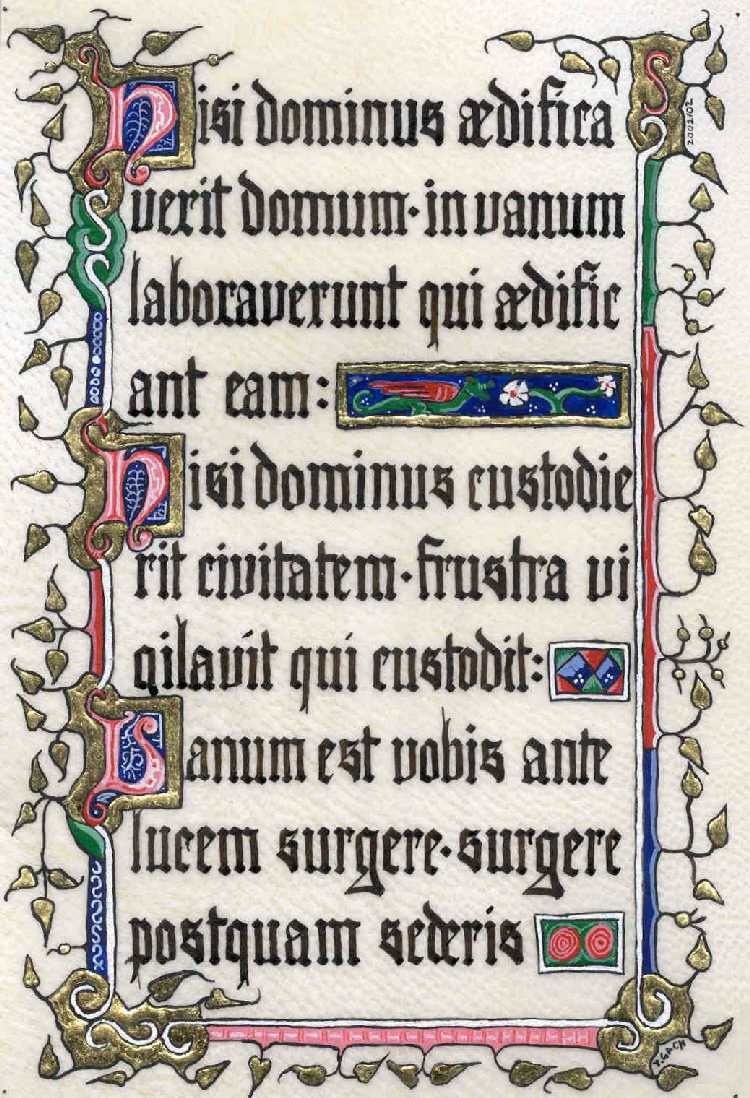 Nisi dominus ædifica
verit domum · in vanum
laboraverunt qui ædific
ant eam:
Nisi dominus custodie
rit civitatem · frustra vi
gilavit qui custodit:
Vanum est vobis ante
lucem surgere · surgere
postquam sederis
2002/02